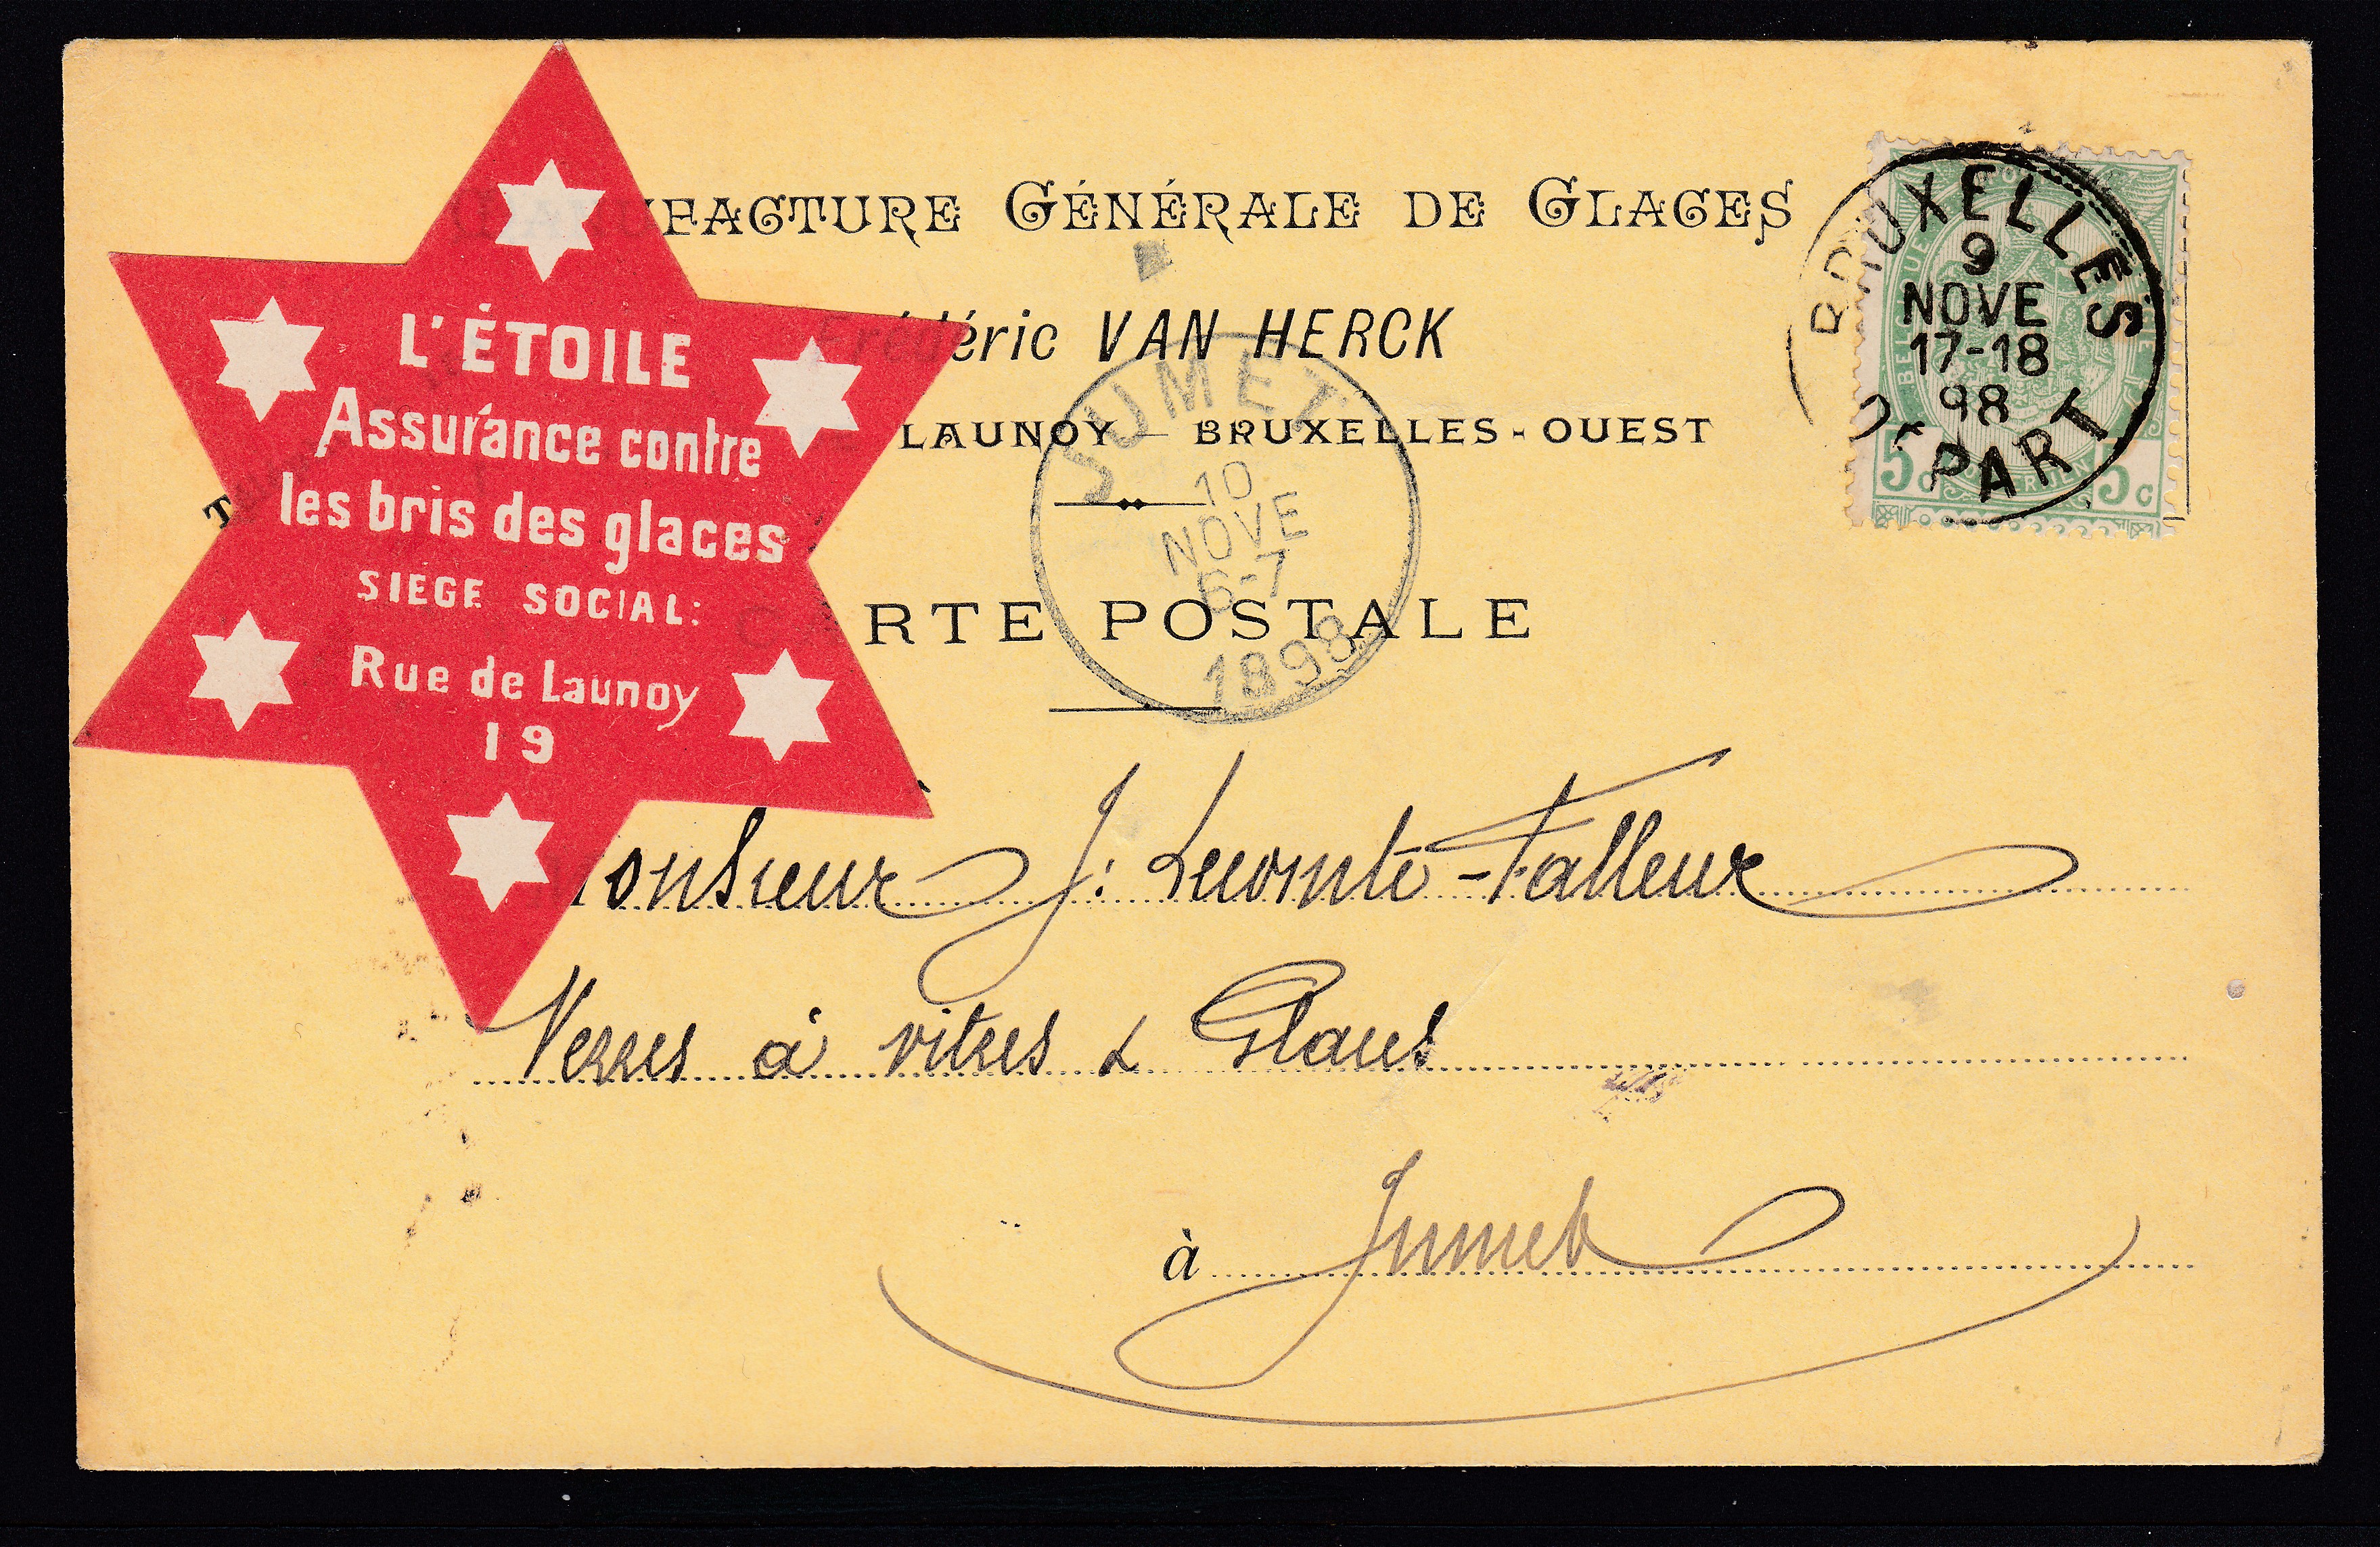 UFACTURE GÉNÉRALE DE GLACES
Frédéric VAN HERCK
LAUNOY — BRUXELLES-OUEST
CARTE POSTALE
L'ÉTOILE
Assurance contre
les bris des glaces
SIÈGE SOCIAL:
Rue de Launoy
19
BRUXELLES
9
NOVE
17-18
98
DÉPART
5c 5c
JUMET
10
NOVE
6-7
1898
Monsieur J. Lecomte-Falleur
Verres à vitres & Glaces
à Jumet